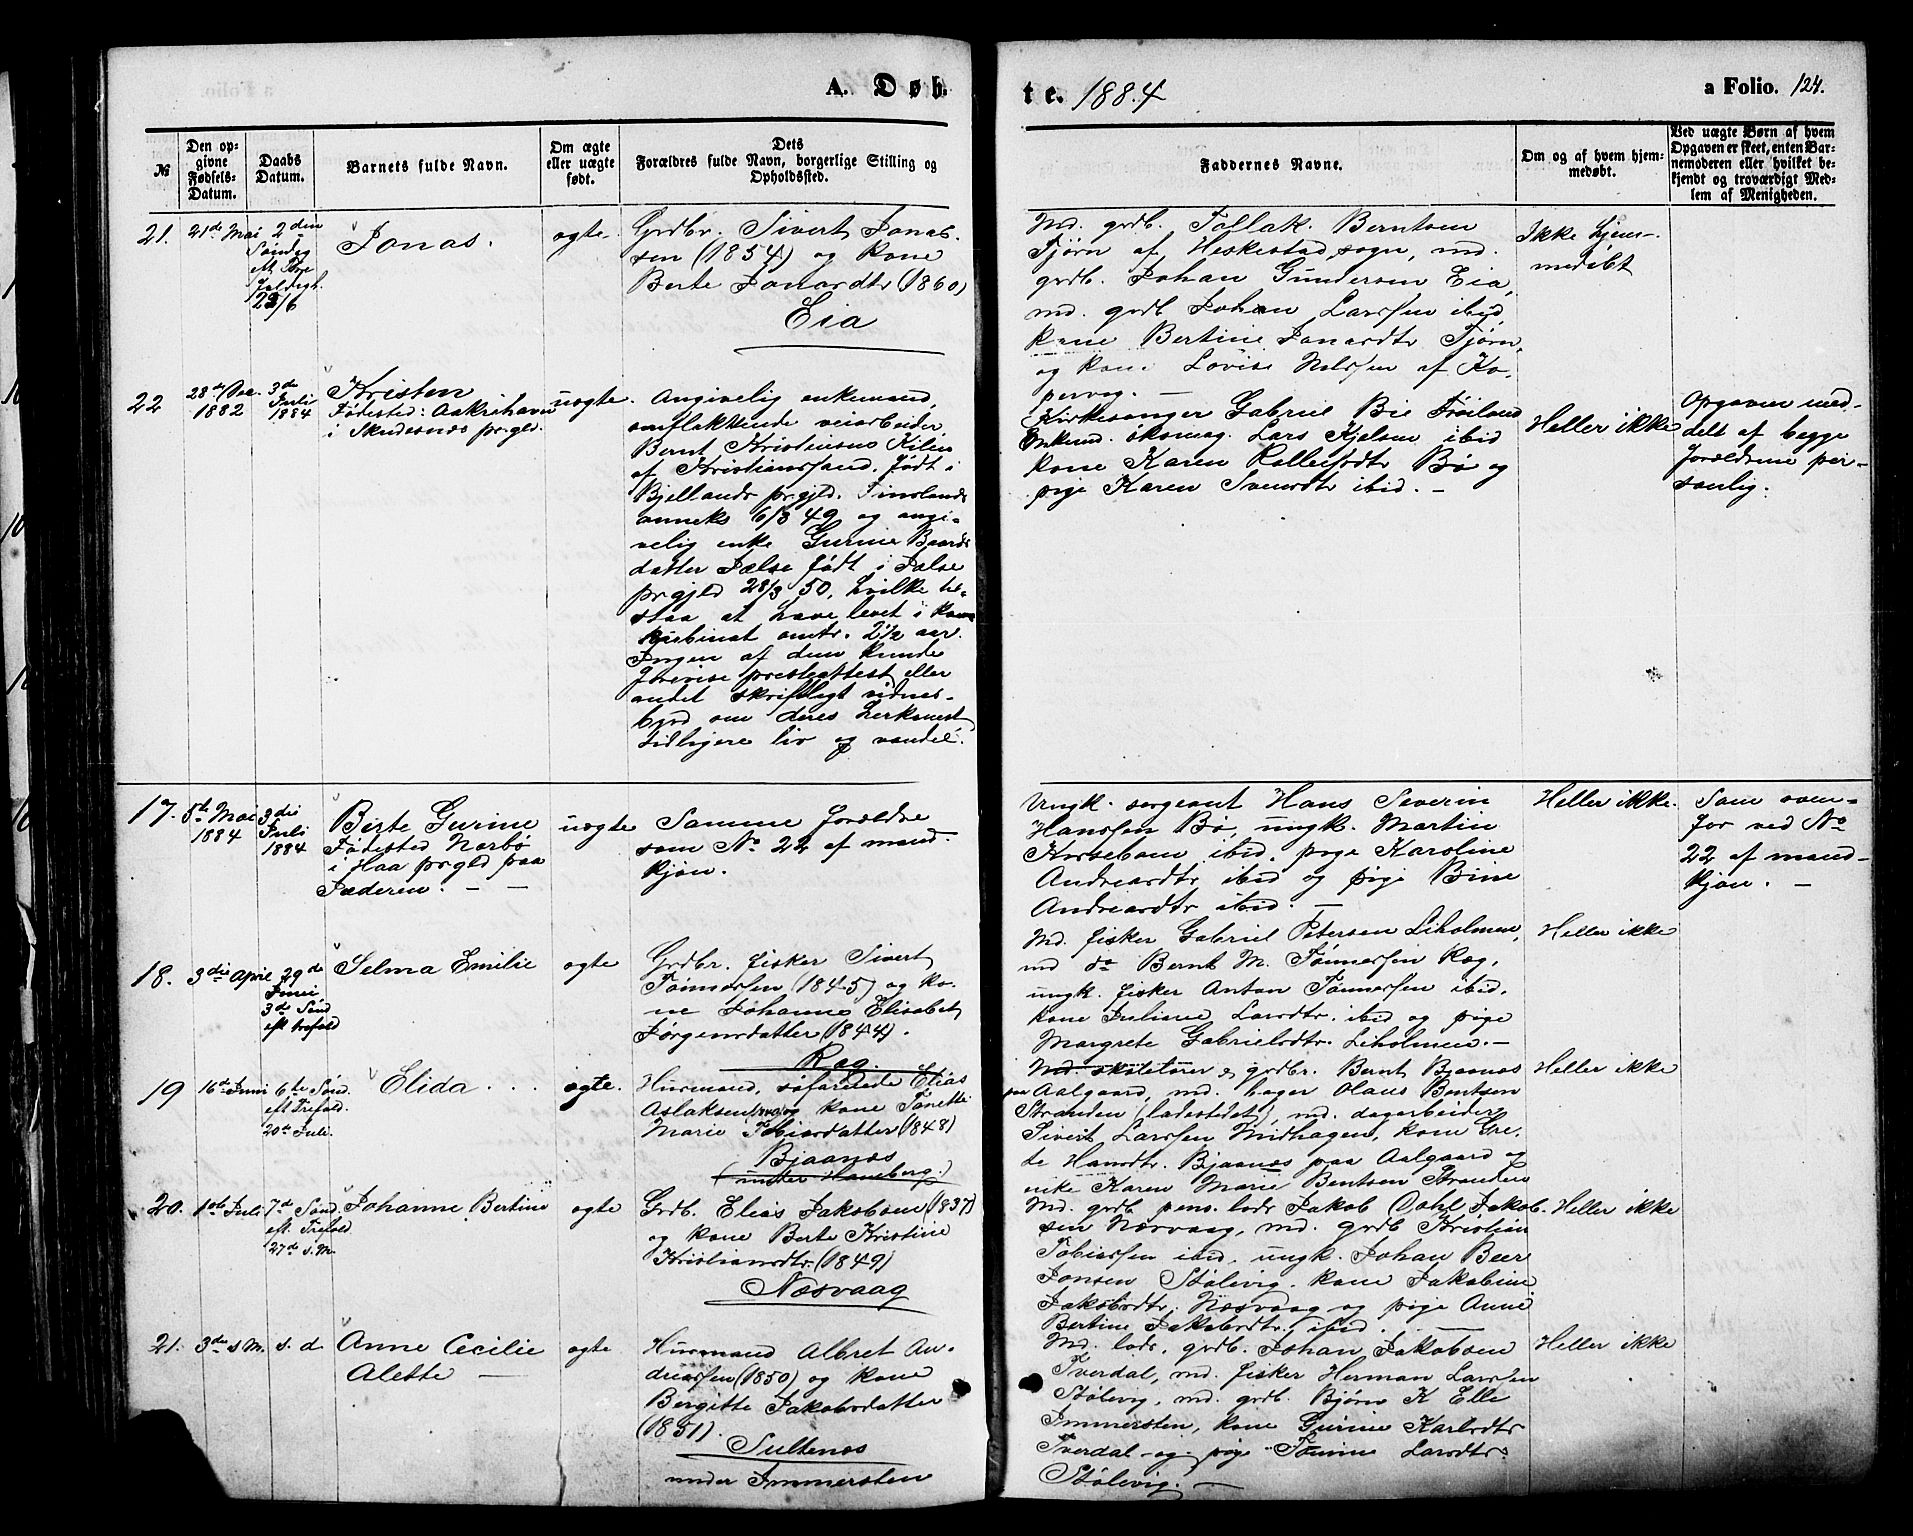 A. Døb-
te. 1884
a Folio. 124.
№
Den op-
givne
Fødsels-
Datum.
Daabs
Datum.
Barnets fulde Navn.
Om ægte
eller uægte
født.
Dets
Forældres fulde Navn, borgerlige Stilling og
Opholdssted.
Faddernes Navne.
Om og af hvem hjem-
medøbt.
Ved uægte Børn af hvem
Opgaven er skeet, enten Bar-
nemoderen eller hvilket be-
kjendt og troværdigt Med-
lem af Menigheden.
21.
21de Mai
2den
Søndag
eft.
22/6
Jonas.
ægte
Grdbr. Sivert Jonas-
sen (1854) og kone
Berte Jonasdtr (1860)
Eia
Md. grdb. Tollak Berntsen
Tjørn af Heskestad sogn, md.
grdb. Johan Gundersen Eia,
md. grdb Johan Larssen ibid
kone Bertine Jonasdtr Tjørn,
og kone Lovise Nilssen af Ko-
pervag. —
Ikke hjem-
medøbt
22
28de Dec.
1882
3die
Juli
1884
Kristen
Fødested: Aakrehavn
i Skudesnes prgld.
uægte.
Angivelig enkemand,
omflakkende veiarbeider
Bernt Kristensen Kilen
af Kristianssand, født i
Bjellands prgjld. Finslands
anneks 6/3 49 og angi-
velig enke Gurine Baards
datter Jælse født i Jælse
prgjeld 28/3 50, hvilke til-
staa at have levet i kon-
kubinat omtr. 2½ aar.
Ingen af dem kunde
forevise presteattest eller
andet skriftligt vidnes-
byrd om deres herkomst
tidligere liv og vandel.
Kirkesanger Gabriel Bie Frøiland
Enkem. øksmag. Lars Kjelsen ibid
kone Karen Rollefsdtr Bø og
pige Karen Svensdtr ibid. —
Heller ikke
Opgaven med-
delt af begge
forældrene per-
sonlig.
17.
5te Mai
1884
3die
Juli
1884
Berte Gurine
Fødested Nærbø
i Haa prgld paa
Jæderen. — —
uægte
Samme forældre
som No. 22 af mand-
kjøn.
Ungk. sergeant Hans Severin
Hanssen Bø, ungk. Martin
ibid, pige Karoline
Andreasdtr ibid og pige Bine
Andreasdtr ibid. —
Heller ikke.
Som oven-
for ved No
22 af mand-
kjøn. —
18.
3die April
29de
Juni
3die Sønd
eft trefold
Selma Emilie
ægte
Grdbr. fisker Sivert
Tønnessen (1845) og ko-
ne Johanne Elisabet
Jørgensdatter (1844).
Ræg.
Md. fisker Gabriel Petersen Liholmen,
md do Bernt M. Tønnessen Ræg,
ungk. fisker Anton Tønnessen ibid,
kone Juliane Larsdtr. ibid og pige
Margrete Gabrielsdtr. Liholmen. —
Heller ikke
19
16de Juni
6te Sønd.
eft Trefold.
20de Juli.
Elida
ægte.
Husmand, søfarende Elias
Aslaksen og kone Tonette
Marie Tobiasdatter (1848)
Bjaanæs
(under Haneberg.)
Md. og grdbr. Bernt Bjaanæs
paa Aalgaard, md. bager Olaus Bentsen
Stranden (ladestedet), md. dagarbeider
Sivert Larssen Midhagen, kone Gre-
te Hansdtr. Bjaanæs paa Aalgaard og
enke Karen Marie Bentsen Stranden
Heller ikke
20.
1ste Juli
7de Sønd.
eft. Trefold
27de s. M.
Johanne Bertine
ægte
Grdb. Elias Jakobsen (1837)
og kone Berte Kristine
Kristiansdtr. (1849)
Næsvaag
Md. grdb pens. lods Jakob Dahl Jakob-
sen Næsvaag, md. grdb Kristian
Tobiassen ibid, ungk. Johan Beer
Jonsen Stølevig, kone Jakobine
Jakobsdtr. Næsvaag og pige Anne
Bertine Jakobsdtr. ibid. —
Heller ikke
21.
3die s M.
s. d
Anne Cecilie
Alette —
ægte
Husmand Albret An-
dreassen (1850) og kone
Bergitte Jakobsdatter
(1851).
Sultenæs
under Immersten
Md. lods, grdb. Johan Jakobsen
Tverdal, md. fisker Herman Larssen
Stølevig, md. grdb. Bjørn K Elle
Immersten, kone Gurine Karlsdtr
Tverdal og pige Tonine Larsdtr.
Stølevig. —
Heller ikke